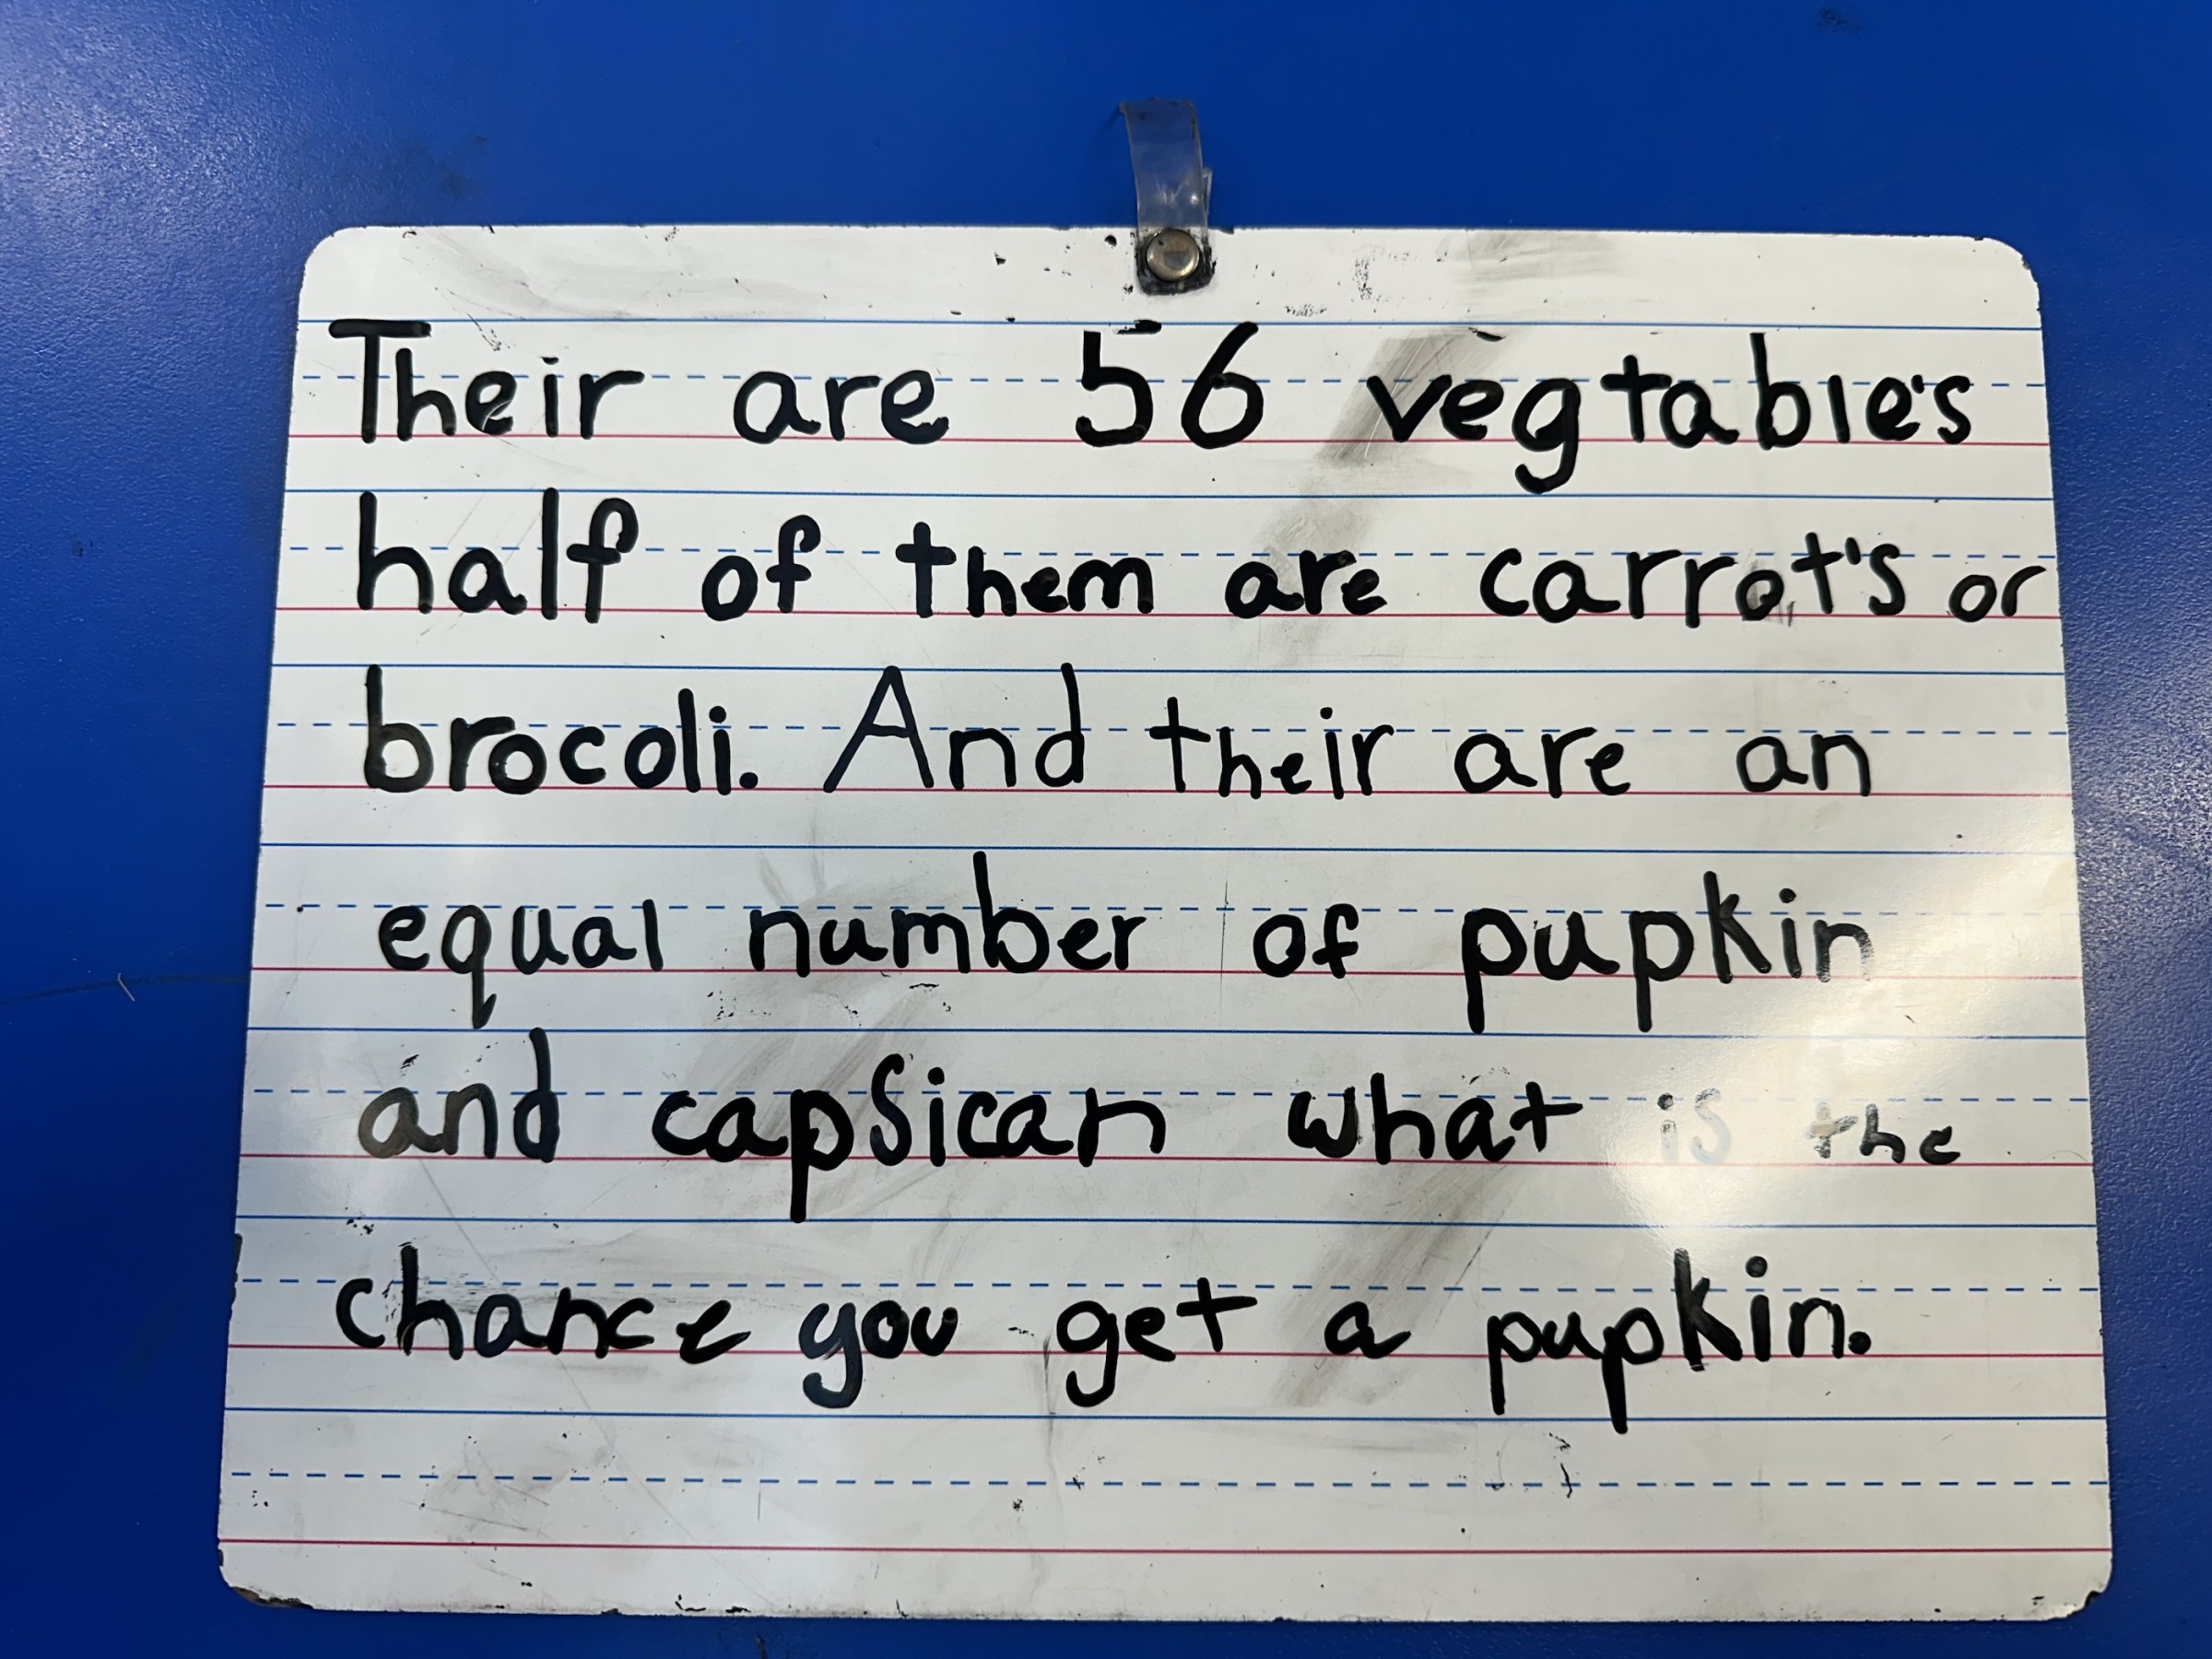 Their are 56 vegtable's
half of them are carrot's or
brocoli. And their are an
equal number of pupkin
and capsican what is the
chance you get a pupkin.